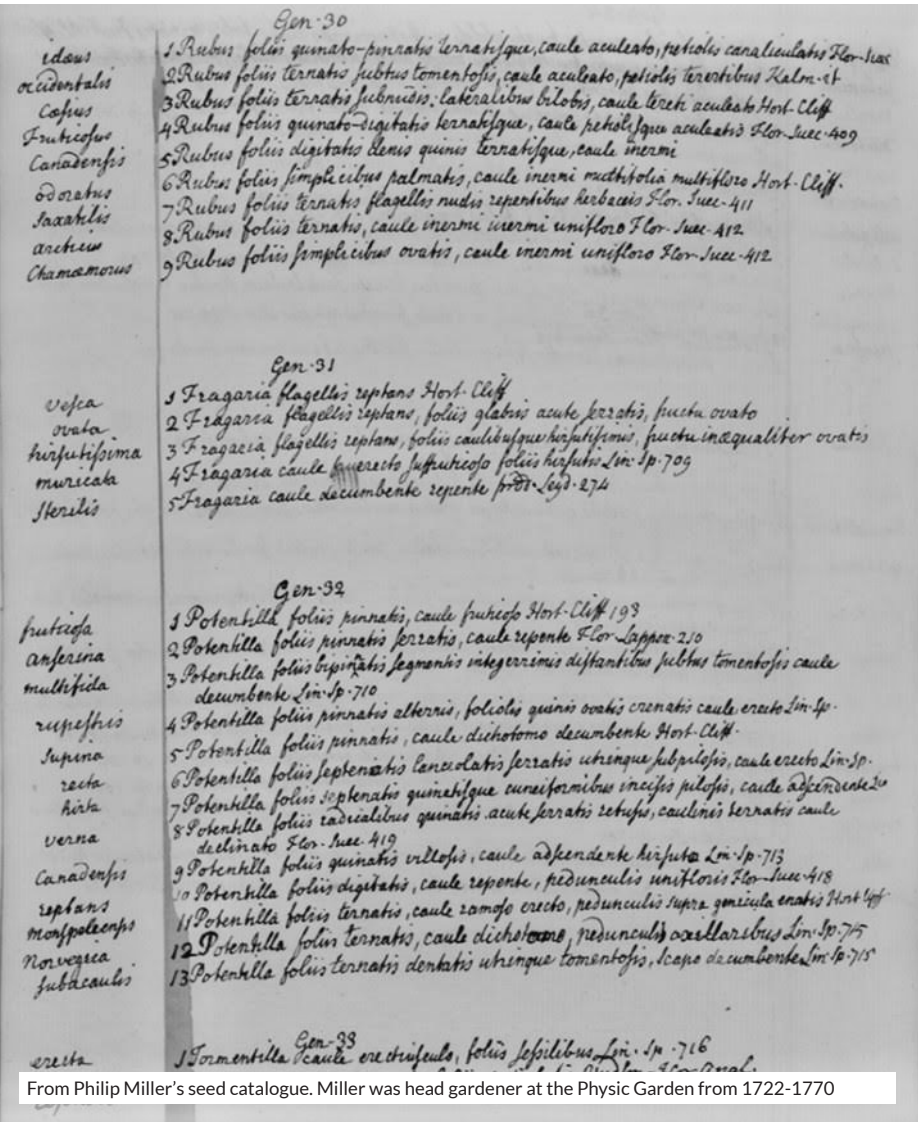 Gen·30
idæus 1 Rubus foliis quinato-pinnatis ternatisque, caule aculeato, petiolis canaliculatis Flor-Suec
occidentalis 2 Rubus foliis ternatis subtus tomentosis, caule aculeato, petiolis teretibus Kalm-it
Cæsius 3 Rubus foliis ternatis subnudis: lateralibus bilobis, caule tereti aculeato Hort-Cliff
Fruticosus 4 Rubus foliis quinato-digitatis ternatisque, caule petiolisque aculeatis Flor-Suec-409
Canadensis 5 Rubus foliis digitatis denis quinis ternatisque, caule inermi
odoratus 6 Rubus foliis simplicibus palmatis, caule inermi multifolia multifloro Hort-Cliff-
saxatilis 7 Rubus foliis ternatis flagellis nudis repentibus herbaceis Flor. Suec-411
arcticus 8 Rubus foliis ternatis, caule inermi inermi unifloro Flor-Suec-412
Chamæmorus 9 Rubus foliis simplicibus ovatis, caule inermi unifloro Flor-Suec-412
Gen·31
vesca 1 Fragaria flagellis reptans Hort-Cliff
ovata 2 Fragaria flagellis reptans, foliis glabris acute serratis, fructu ovato
hirsutissima 3 Fragaria flagellis reptans, foliis caulibusque hirsutissimis, fructu inæqualiter ovatis
muricata 4 Fragaria caule erecto suffruticoso foliis hirsutis Lin-Sp-709
Sterilis 5 Fragaria caule decumbente repente Leyd-274
Gen·32
fruticosa 1 Potentilla foliis pinnatis, caule fruticoso Hort-Cliff 193
anserina 2 Potentilla foliis pinnatis serratis, caule repente Flor Lappon-210
multifida 3 Potentilla foliis bipinatis segmentis integerrimis distantibus subtus tomentosis caule
decumbente Lin-Sp-710
rupestris 4 Potentilla foliis pinnatis alternis, foliolis quinis ovatis crenatis caule erecto Lin-Sp-
Supina 5 Potentilla foliis pinnatis, caule dichotomo decumbente Hort-Cliff-
recta 6 Potentilla foliis septenatis lanceolatis serratis utrinque subpilosis, caule erecto Lin-Sp-
hirta 7 Potentilla foliis septenatis quinatisque cuneiformibus incisis pilosis, caule adscendente Lin
verna 8 Potentilla foliis radicalibus quinatis acute serratis retusis, caulinis ternatis caule
declinato Flor-Suec-419
Canadensis 9 Potentilla foliis quinatis villosis, caule adscendente hirsuto Lin-Sp-713
reptans 10 Potentilla foliis digitatis, caule repente, pedunculis unifloris Flor-Suec-418
monspeleensis 11 Potentilla foliis ternatis, caule ramoso erecto, pedunculis supra genicula enatis Hort Upf
Norvegica 12 Potentilla foliis ternatis, caule dichotomo, pedunculis axillaribus Lin-Sp-715
subacaulis 13 Potentilla foliis ternatis dentatis utrinque tomentosis, scapo decumbente Lin-Sp-715
Gen·33
erecta 1 Tormentilla caule erectiusculo, foliis sessilibus Lin-Sp-716
From Philip Miller's seed catalogue. Miller was head gardener at the Physic Garden from 1722-1770